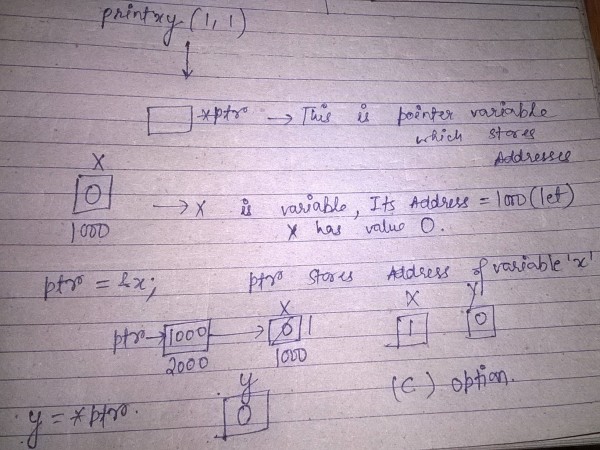 printxy (1, 1)
*ptr → This is pointer variable
which stores
Addresses
X
0
1000
→ X is variable, Its Address = 1000 (let)
X has value 0.
ptr = &x; ptr stores Address of variable 'x'
X X Y
ptr → 1000 → 0 1 1 0
2000 1000
y (C) option.
y = *ptr. 0